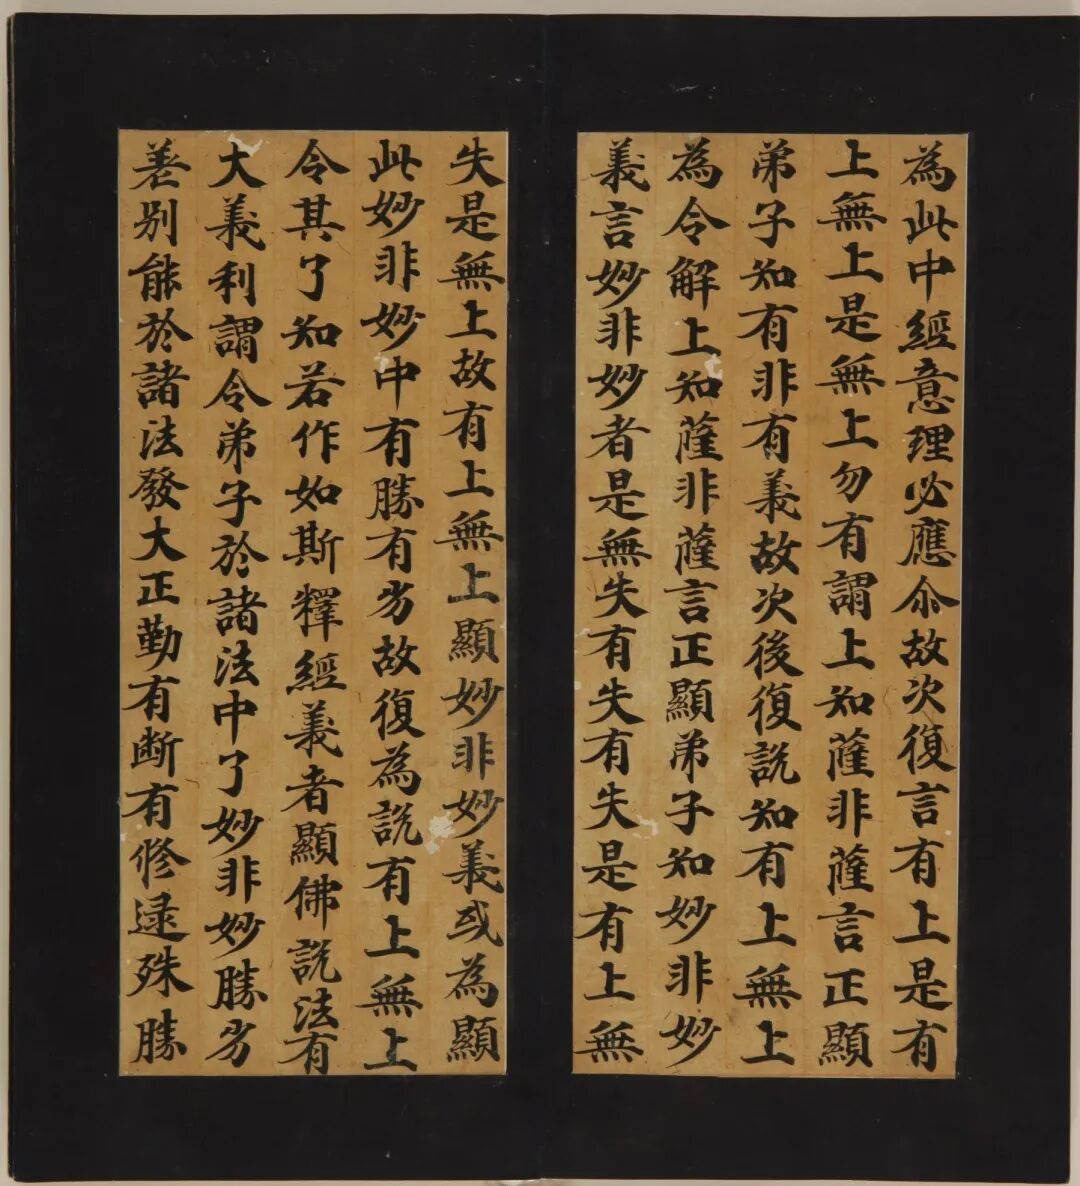 為此中經意理必應尒故次復言有上是有
上無上是無上勿有謂上知薩非薩言正顯
弟子知有非有義故次後復說知有上無上
為令解上知薩非薩言正顯弟子知妙非妙
義言妙非妙者是無失有失有失是有上無
失是無上故有上無上顯妙非妙義或為顯
此妙非妙中有勝有劣故復為說有上無上
令其了知若作如斯釋經義者顯佛說法有
大義利謂令弟子於諸法中了妙非妙勝劣
差別能於諸法發大正勤有斷有修逮殊勝